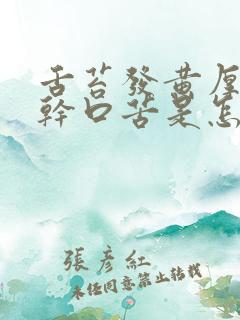 舌苔發黄厚
幹口苦是怎
張彦紅
未经同意禁止转载